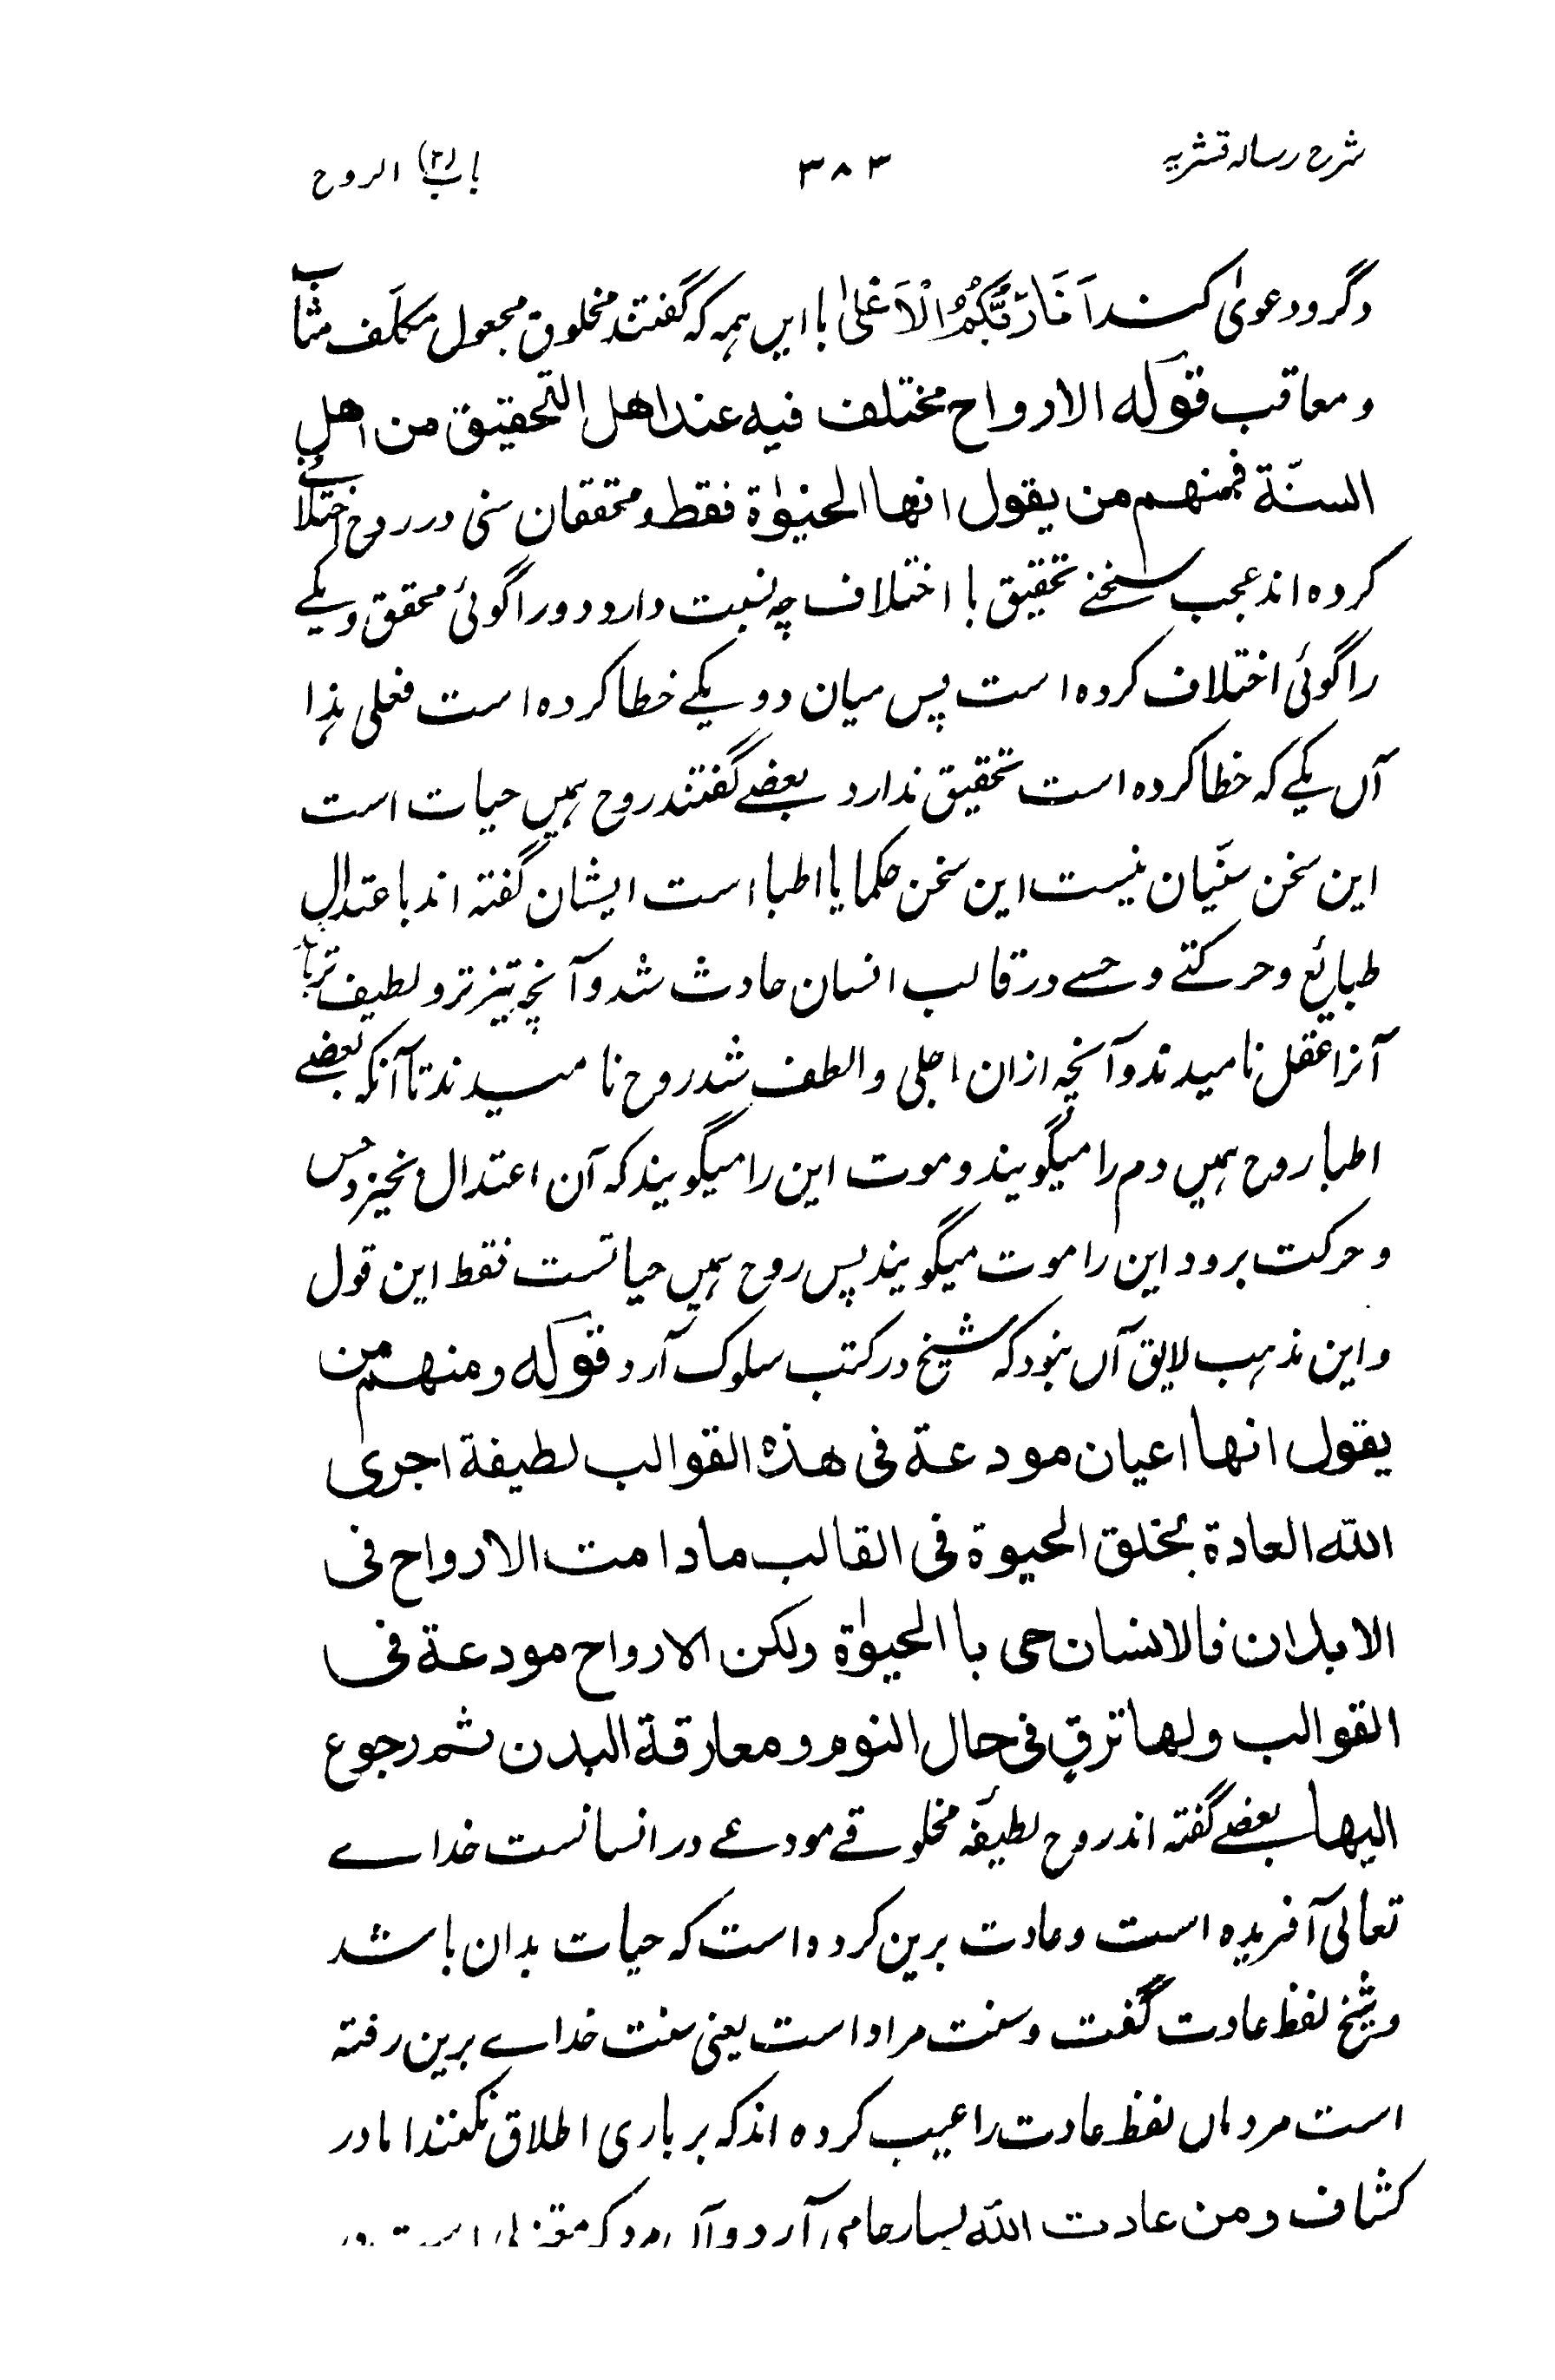 شرح رسالہ قشریہ ۳۸۳ باب (۴۱) الروح
دگرو دعویٰ کند اَنَا رَبُّکُمُ الْاَعْلیٰ با ایں ہمہ کہ گفتند مخلوق مجعول مکلَف مثاب
و معاقب قولہ الارواح مختلف فیہ عند اھل التحقیق من اھل
السنّة فمنھم من یقول انھا الحیٰوة فقط و محققان سنی در روح اختلافے
کردہ اند عجب سخنے تحقیق با اختلاف چہ نسبت دارد دو را گوئی محقق و یکے
را گوئی اختلاف کردہ است پس میان دو یکے خطا کردہ است فعلی ہذا
آں یکے کہ خطا کردہ است تحقیق ندارد بعضے گفتند روح ہمیں حیات است
این سخن سنّیان نیست این سخن حکما یا اطبا است ایشان گفتہ اند با عتدالِ
طبائع و حرکتے و حسے در قالب انسان حادث شد و آنچہ تیز تر و لطیف تر با
آنرا عقل نامیدند و آنچہ ازان اجلی و الطف شد روح نامیدند تا آنکہ بعضے
اطبا روح ہمیں دم را میگویند و موت این را میگویند کہ آن اعتدال نخیزد حس
و حرکت برود این را موت میگویند پس روح ہمیں حیاتست فقط این قول
و این مذہب لایق آں نبود کہ شیخ در کتب سلوک آرد قولہ و منھم من
یقول انھا اعیان مودعة فی ھذہ القوالب لطیفة اجری
اللہ العادة بخلق الحیوة فی القالب مادامت الارواح فی
الابدان فالانسان حی با الحیٰوة ولکن الارواح مودعة فی
القوالب ولھا ترقٍ فی حال النوم و معارقة البدن ثم رجوع
الیھا بعضے گفتہ اند روح لطیفۂ مخلوقے مودعے در انسانست خداے
تعالیٰ آفریدہ است و عادت برین کردہ است کہ حیات بدان باشد
و شیخ لفظ عادت گفت و سنت مراد است یعنی سنت خداے برین رفتہ
است مردماں لفظ عادت را عیب کردہ اند کہ بر باری اطلاق نکنند اما در
کشاف و من عادت اللہ بسیار جا می آرد و